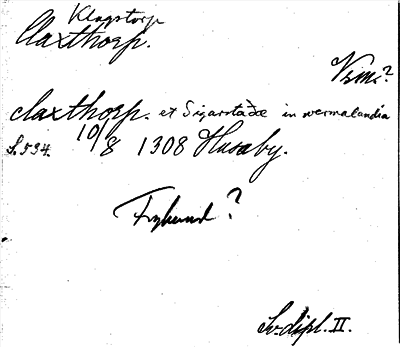 Klagstorp
Claxthorp.
Vrml?
claxthorp. et Sigarstadæ in wermalandia
S. 534. 10/8 1308 Husaby.
Fryksund?
Sv. dipl. II.